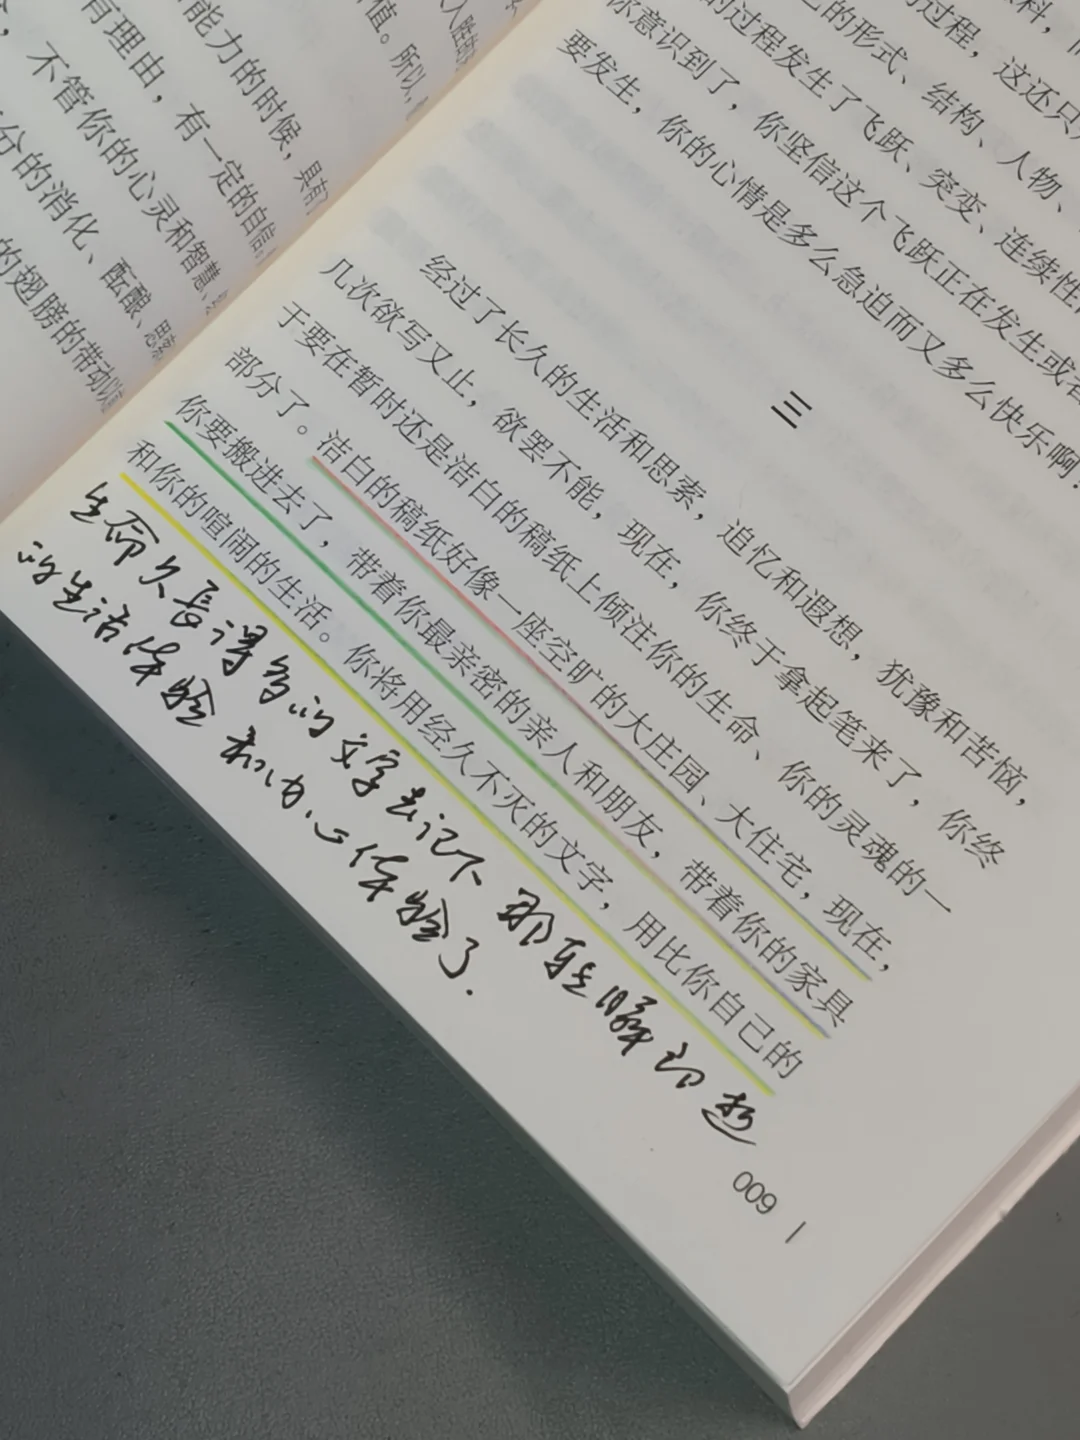 能力的时候，具有
有理由，有一定的自信
不管你的心灵和智慧、
分的消化、酝酿、
的翅膀的带动
值。所以，
的过程，这还只
的形式、结构、人物、
的过程发生了飞跃、突变、连续性
你意识到了，你坚信这个飞跃正在发生或者
要发生，你的心情是多么急迫而又多么快乐啊！
三
经过了长久的生活和思索，追忆和遐想，犹豫和苦恼，
几次欲写又止，欲罢不能，现在，你终于拿起笔来了，你终
于要在暂时还是洁白的稿纸上倾注你的生命、你的灵魂的一
部分了。洁白的稿纸好像一座空旷的大庄园、大住宅，现在，
你要搬进去了，带着你最亲密的亲人和朋友，带着你的家具
和你的喧闹的生活。你将用经久不灭的文字，用比你自己的
生命久長得多的文字去记下那
的生活体验和内心体验了.
009